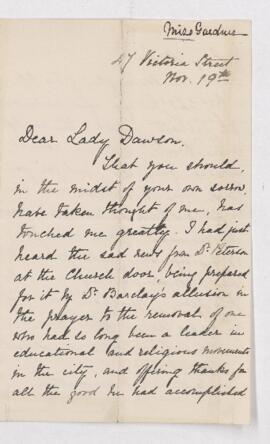 Miss Gardner
47 Victoria Street
Nov. 19th
Dear Lady Dawson,
That you should,
in the midst of your own sorrow,
have taken thought of me, has
touched me greatly. I had just
heard the sad news from Dr. Peterson
at the Church door, being prepared
for it by Dr. Barclay's allusion in
the prayer to the removal of one
who had so long been a leader in
educational and religious movements
in the city, and offering thanks for
all the good he had accomplished